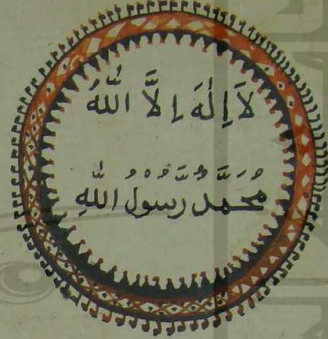 لَا إِلٰهَ إِلَّا اللّٰهُ
مُحَمَّدٌ رَسُولُ اللّٰهِ